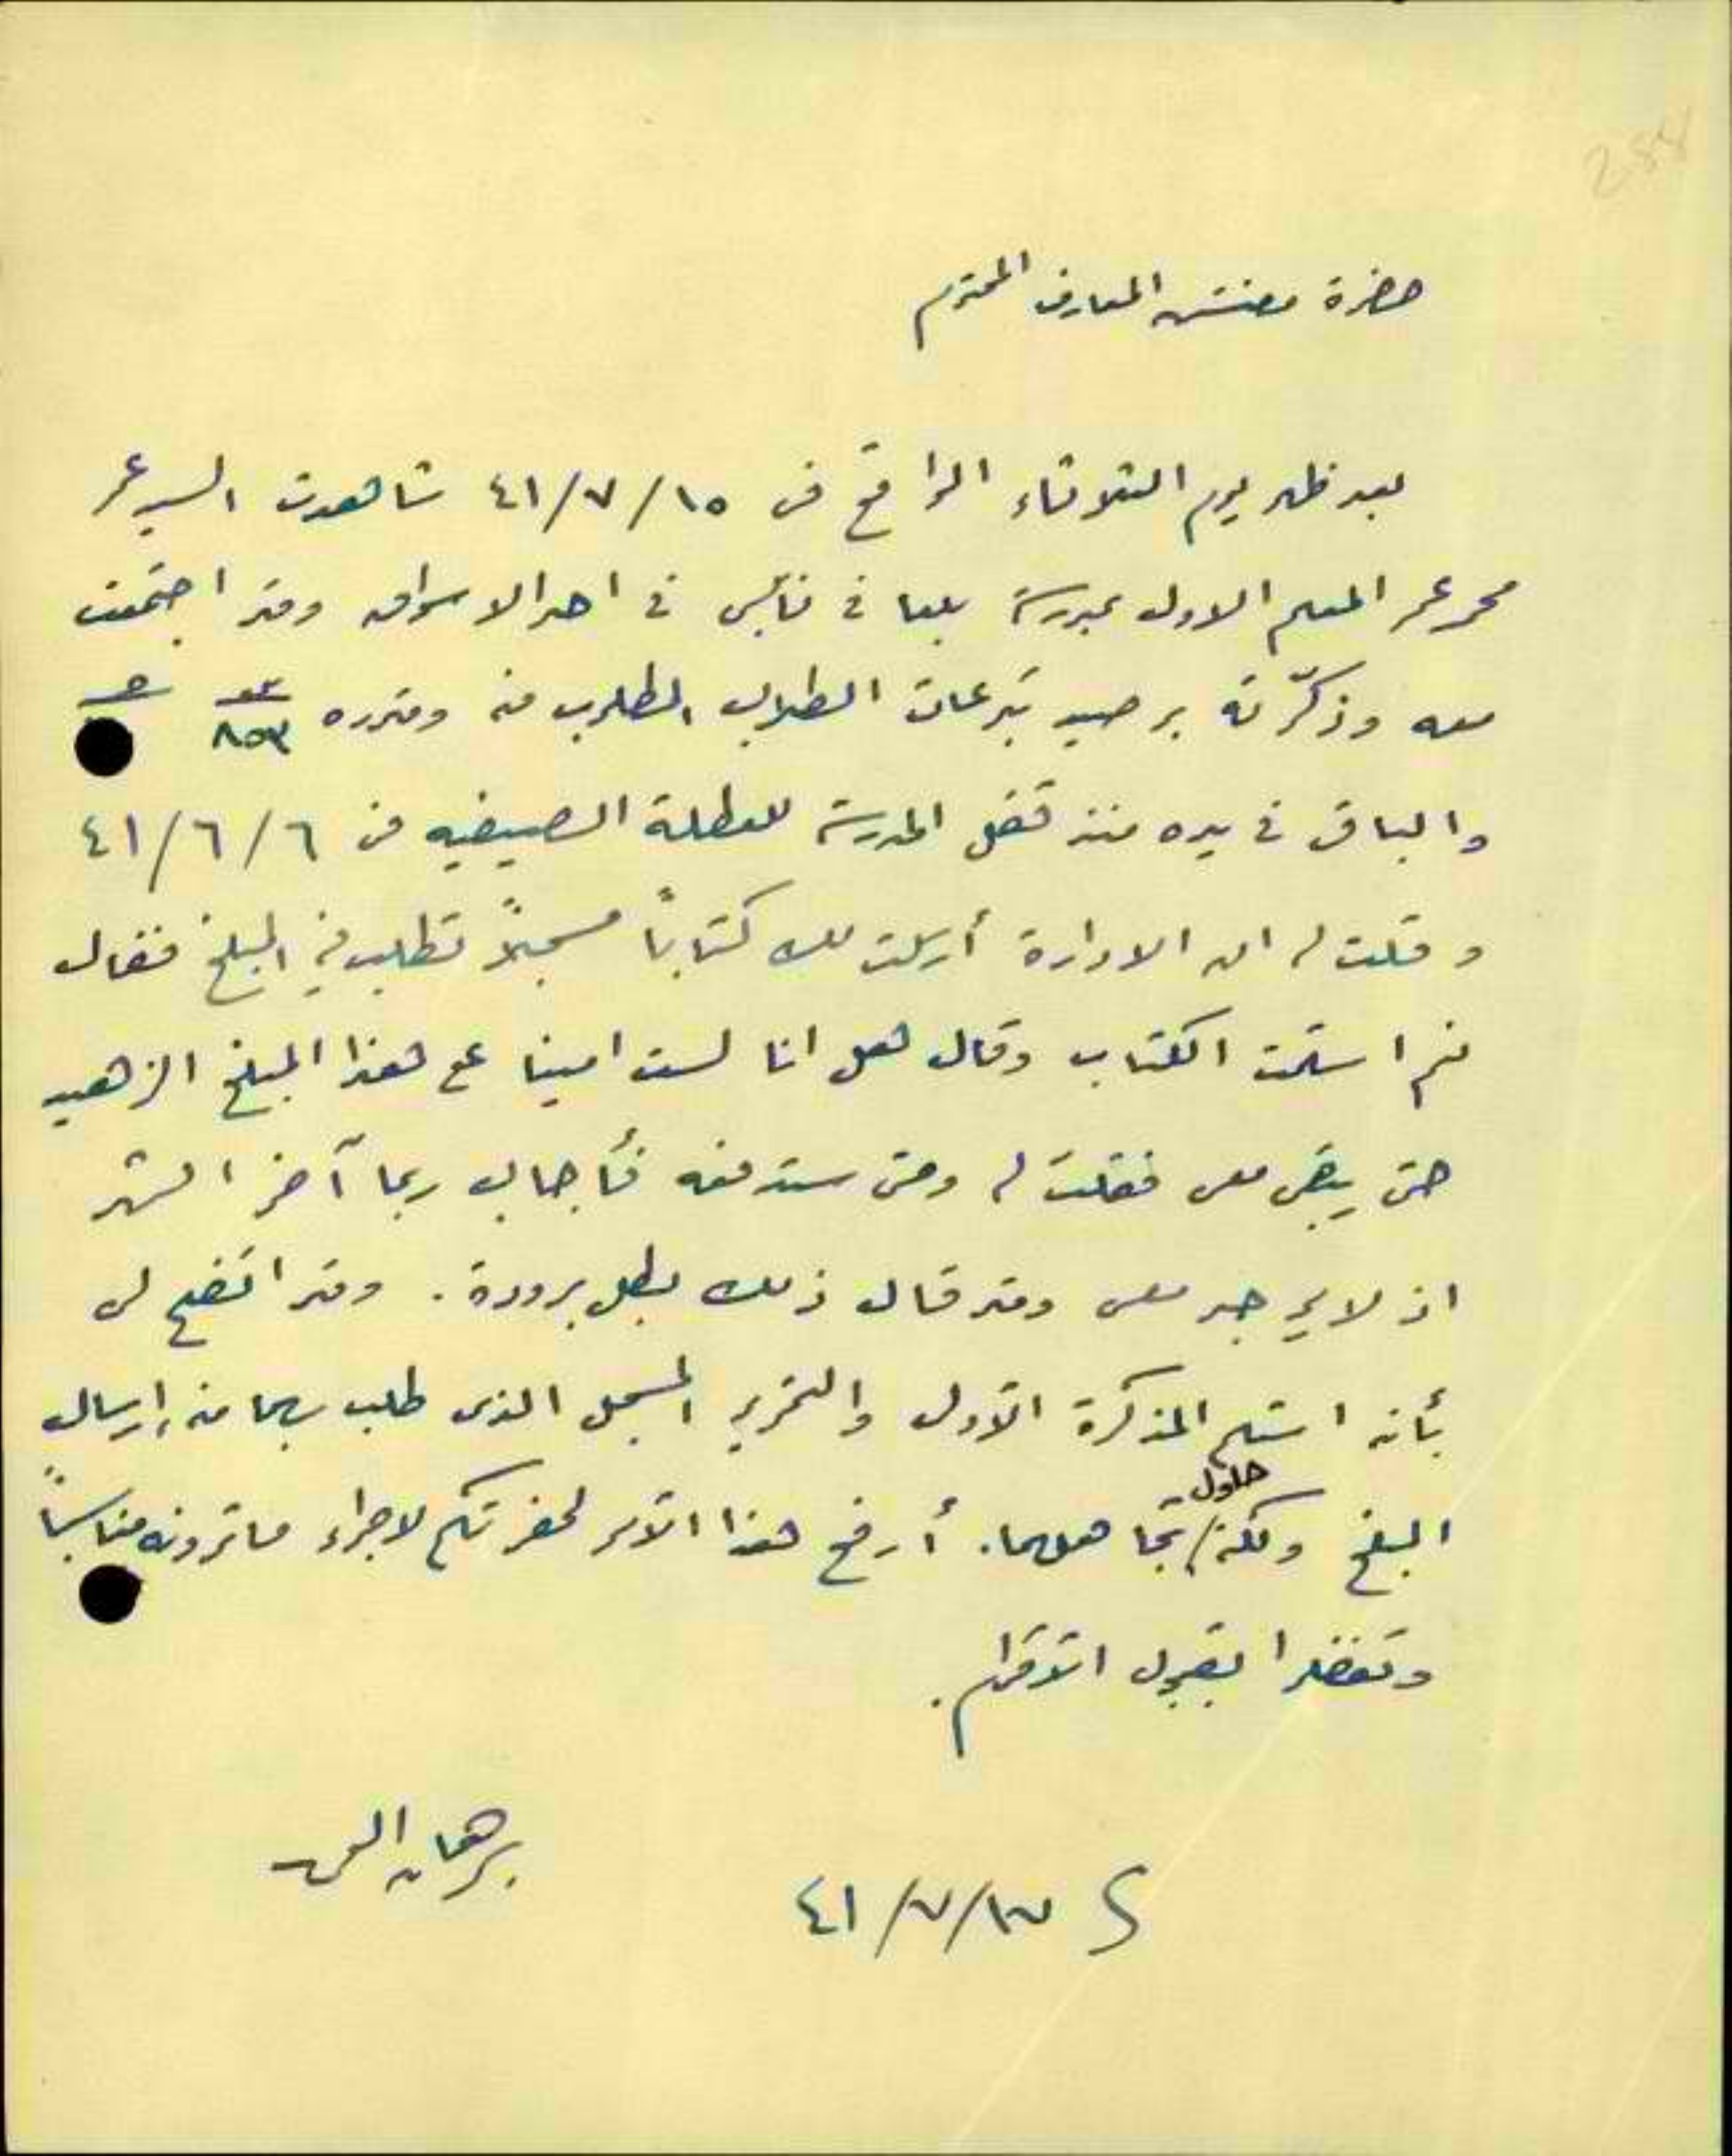 حضرة مفتش المعارف المحترم
بعد ظهر يوم الثلاثاء الواقع في ١٥/٧/٤١ شاهدت السيد عمر
محمد عمر المعلم الاول بمدرسة بلعا في نابلس في احد الاسواق وقد اجتمعت
معه وذكّرته برصيد تبرعات الطلاب المطلوب منه وقدره ٨٥٣
والباقي في يده منذ قفل المدرسة للعطلة الصيفيه في ٦/٦/٤١
وقلت له ان الادارة أرسلت لك كتاباً مسجلاً تطلب فيه المبلغ فقال
نعم استلمت الكتاب وقال هل انا لست امينا على هذا المبلغ الزهيد
حتى يبقى معي فقلت له ومتى ستدفعه فأجاب ربما آخر الشهر
اذ لا يوجد معي وقد قال ذلك بكل برودة. وقد اتضح لي
بأنه استلم المذكرة الأولى والتحرير المسجل الذي طلب بهما منه إرسال
المبلغ ولكنه حاول تجاهلهما. أرفع هذا الأمر لحضرتكم لاجراء ما ترونه مناسباً
وتفضلوا بقبول الاحترام.
برهان
١٧/٧/٤١